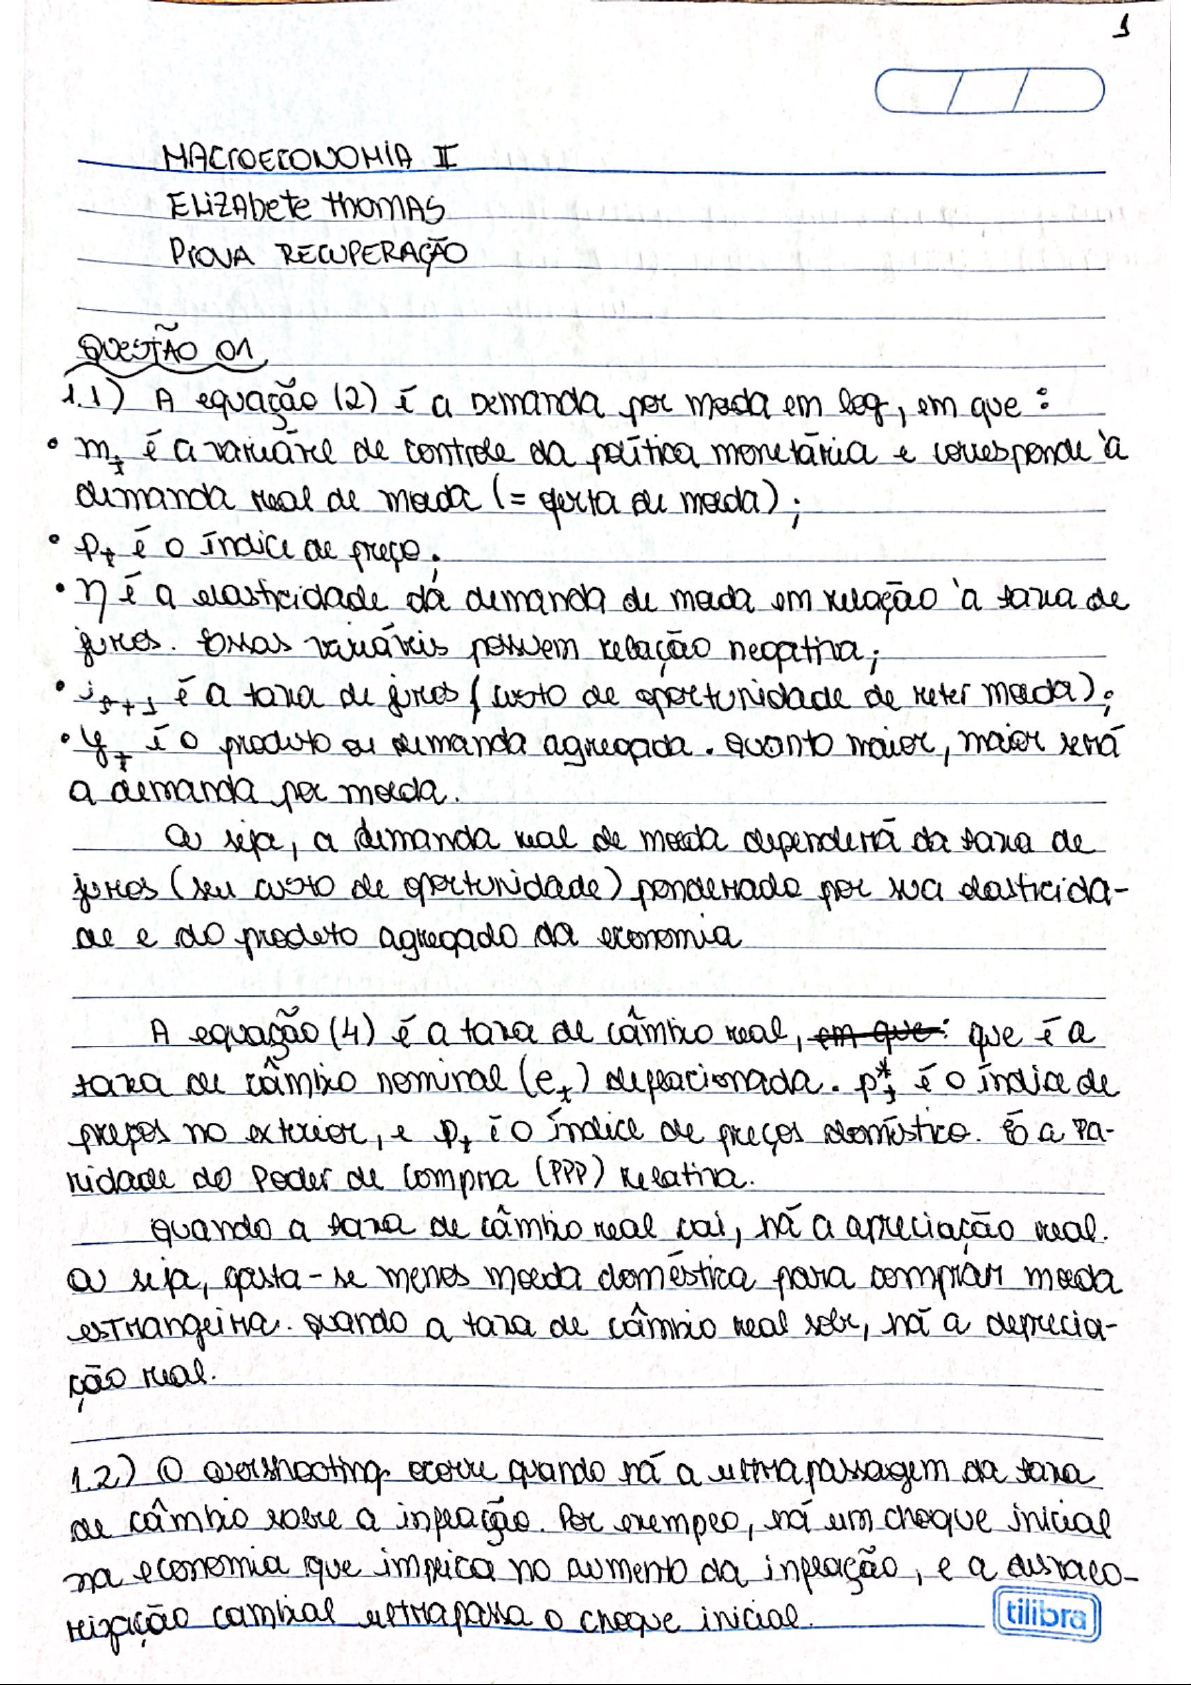 1
MACROECONOMIA II
ELIZAbete THOMAS
PROVA RECUPERAÇÃO
QUESTÃO 01
1.1) A equação (2) é a demanda por moeda em log, em que:
• m_t é a variável de controle da política monetária e corresponde à
demanda real de moeda (= oferta de moeda);
• p_t é o índice de preço;
• η é a elasticidade da demanda de moeda em relação à taxa de
juros. Essas variáveis possuem relação negativa;
• i_{t+1} é a taxa de juros (custo de oportunidade de reter moeda);
• y_t é o produto ou demanda agregada. Quanto maior, maior será
a demanda por moeda.
Ou seja, a demanda real de moeda dependerá da taxa de
juros (seu custo de oportunidade) ponderado por sua elasticida-
de e do produto agregado da economia
A equação (4) é a taxa de câmbio real, em que: que é a
taxa de câmbio nominal (e_t) deflacionada. p*_t é o índice de
preços no exterior, e p_t é o índice de preços doméstico. É a Pa-
ridade do Poder de Compra (PPP) Relativa.
Quando a taxa de câmbio real cai, há a apreciação real.
Ou seja, gasta-se menos moeda doméstica para comprar moeda
estrangeira. Quando a taxa de câmbio real sobe, há a deprecia-
ção real.
1.2) O overshooting ocorre quando há a ultrapassagem da taxa
de câmbio sobre a inflação. Por exemplo, há um choque inicial
na economia que implica no aumento da inflação, e a desvalo-
rização cambial ultrapassa o choque inicial.
tilibra